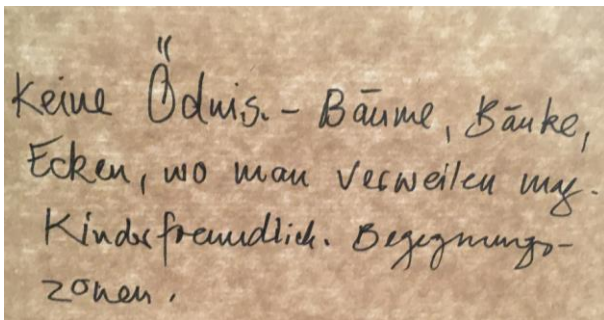 Keine Ödnis. - Bäume, Bänke,
Ecken, wo man verweilen mag.
Kinderfreundlich. Begegnungs-
zonen.